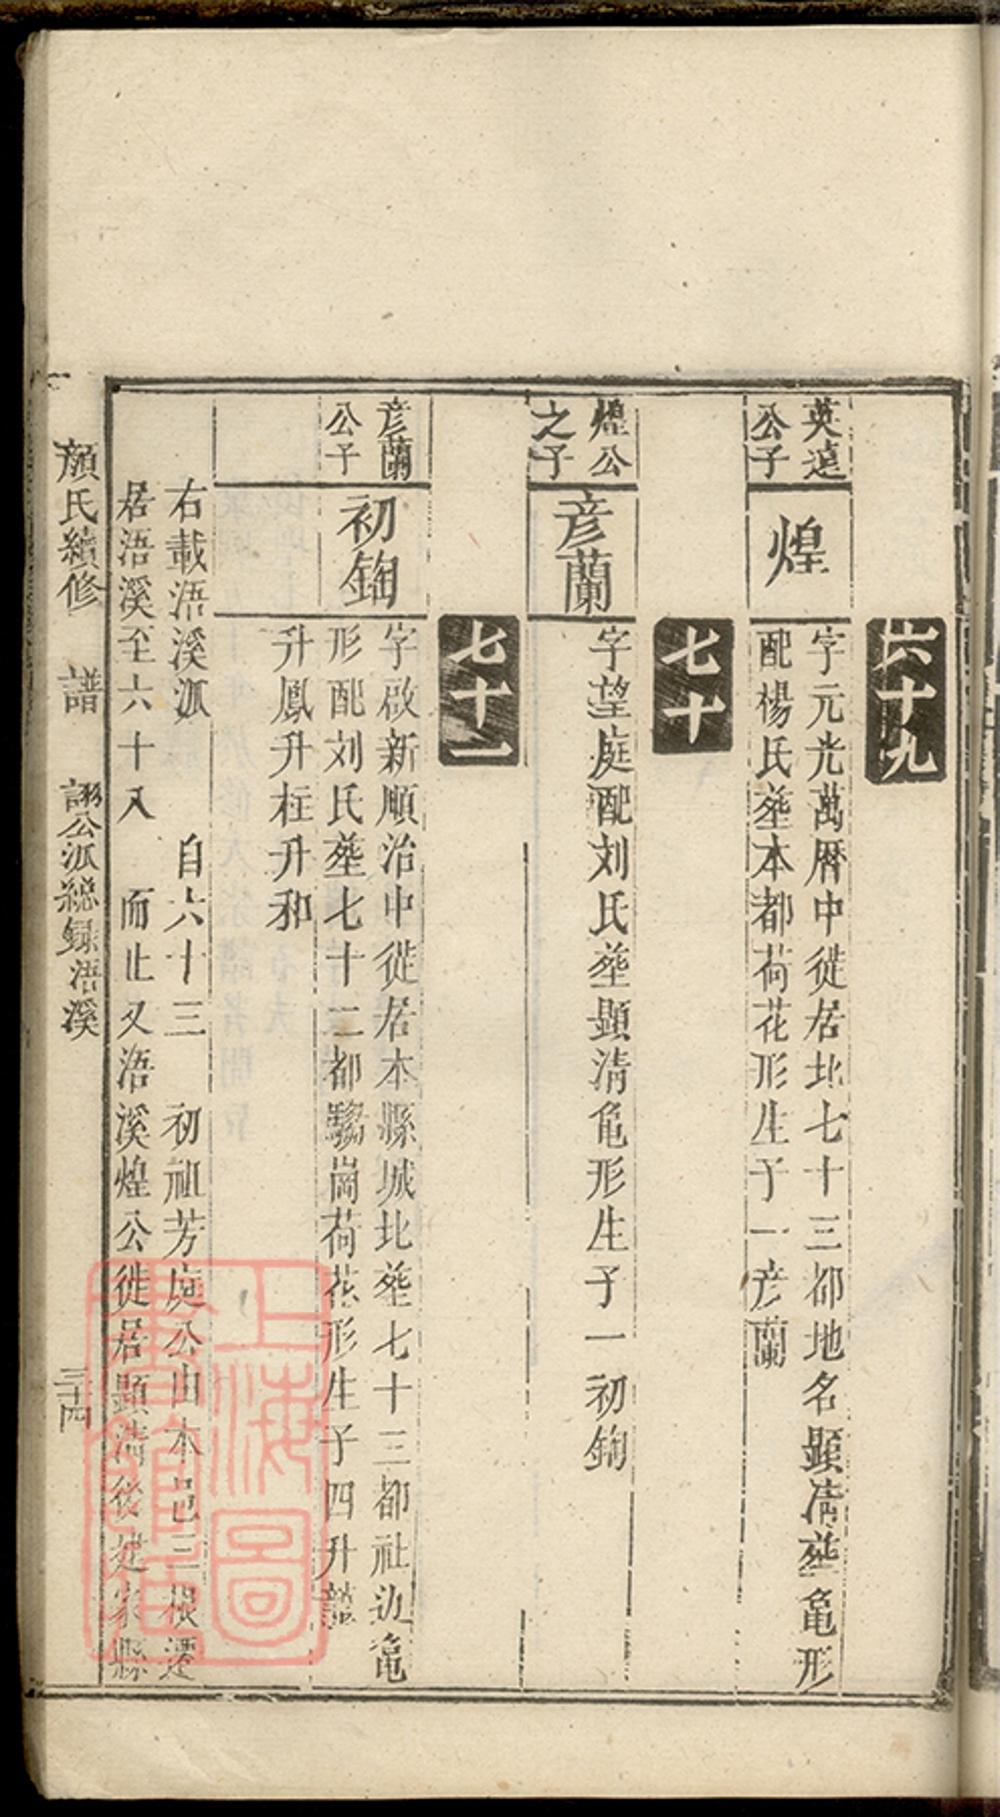 六十九
英遠公子
煌
字元光萬曆中徙居北七十三都地名顕清塟龜形
配楊氏塟本都荷花形生子一彦蘭
七十
煌公之子
彦蘭
字望庭配刘氏塟顕清龟形生子一初鋾
七十一
彦蘭公子
初鋾
字啟新順治中徙居本縣城北塟七十三都社边龟
形配刘氏塟七十二都騶崗荷花形生子四升
升鳳升柱升和
右載浯溪派 自六十三 初祖芳庭公由本邑三根遷
居浯溪至六十入 而止又浯溪煌公徙居顕清後建家縣
顏氏續修 譜 詡公派総録浯溪 三十四
上海圖書館藏